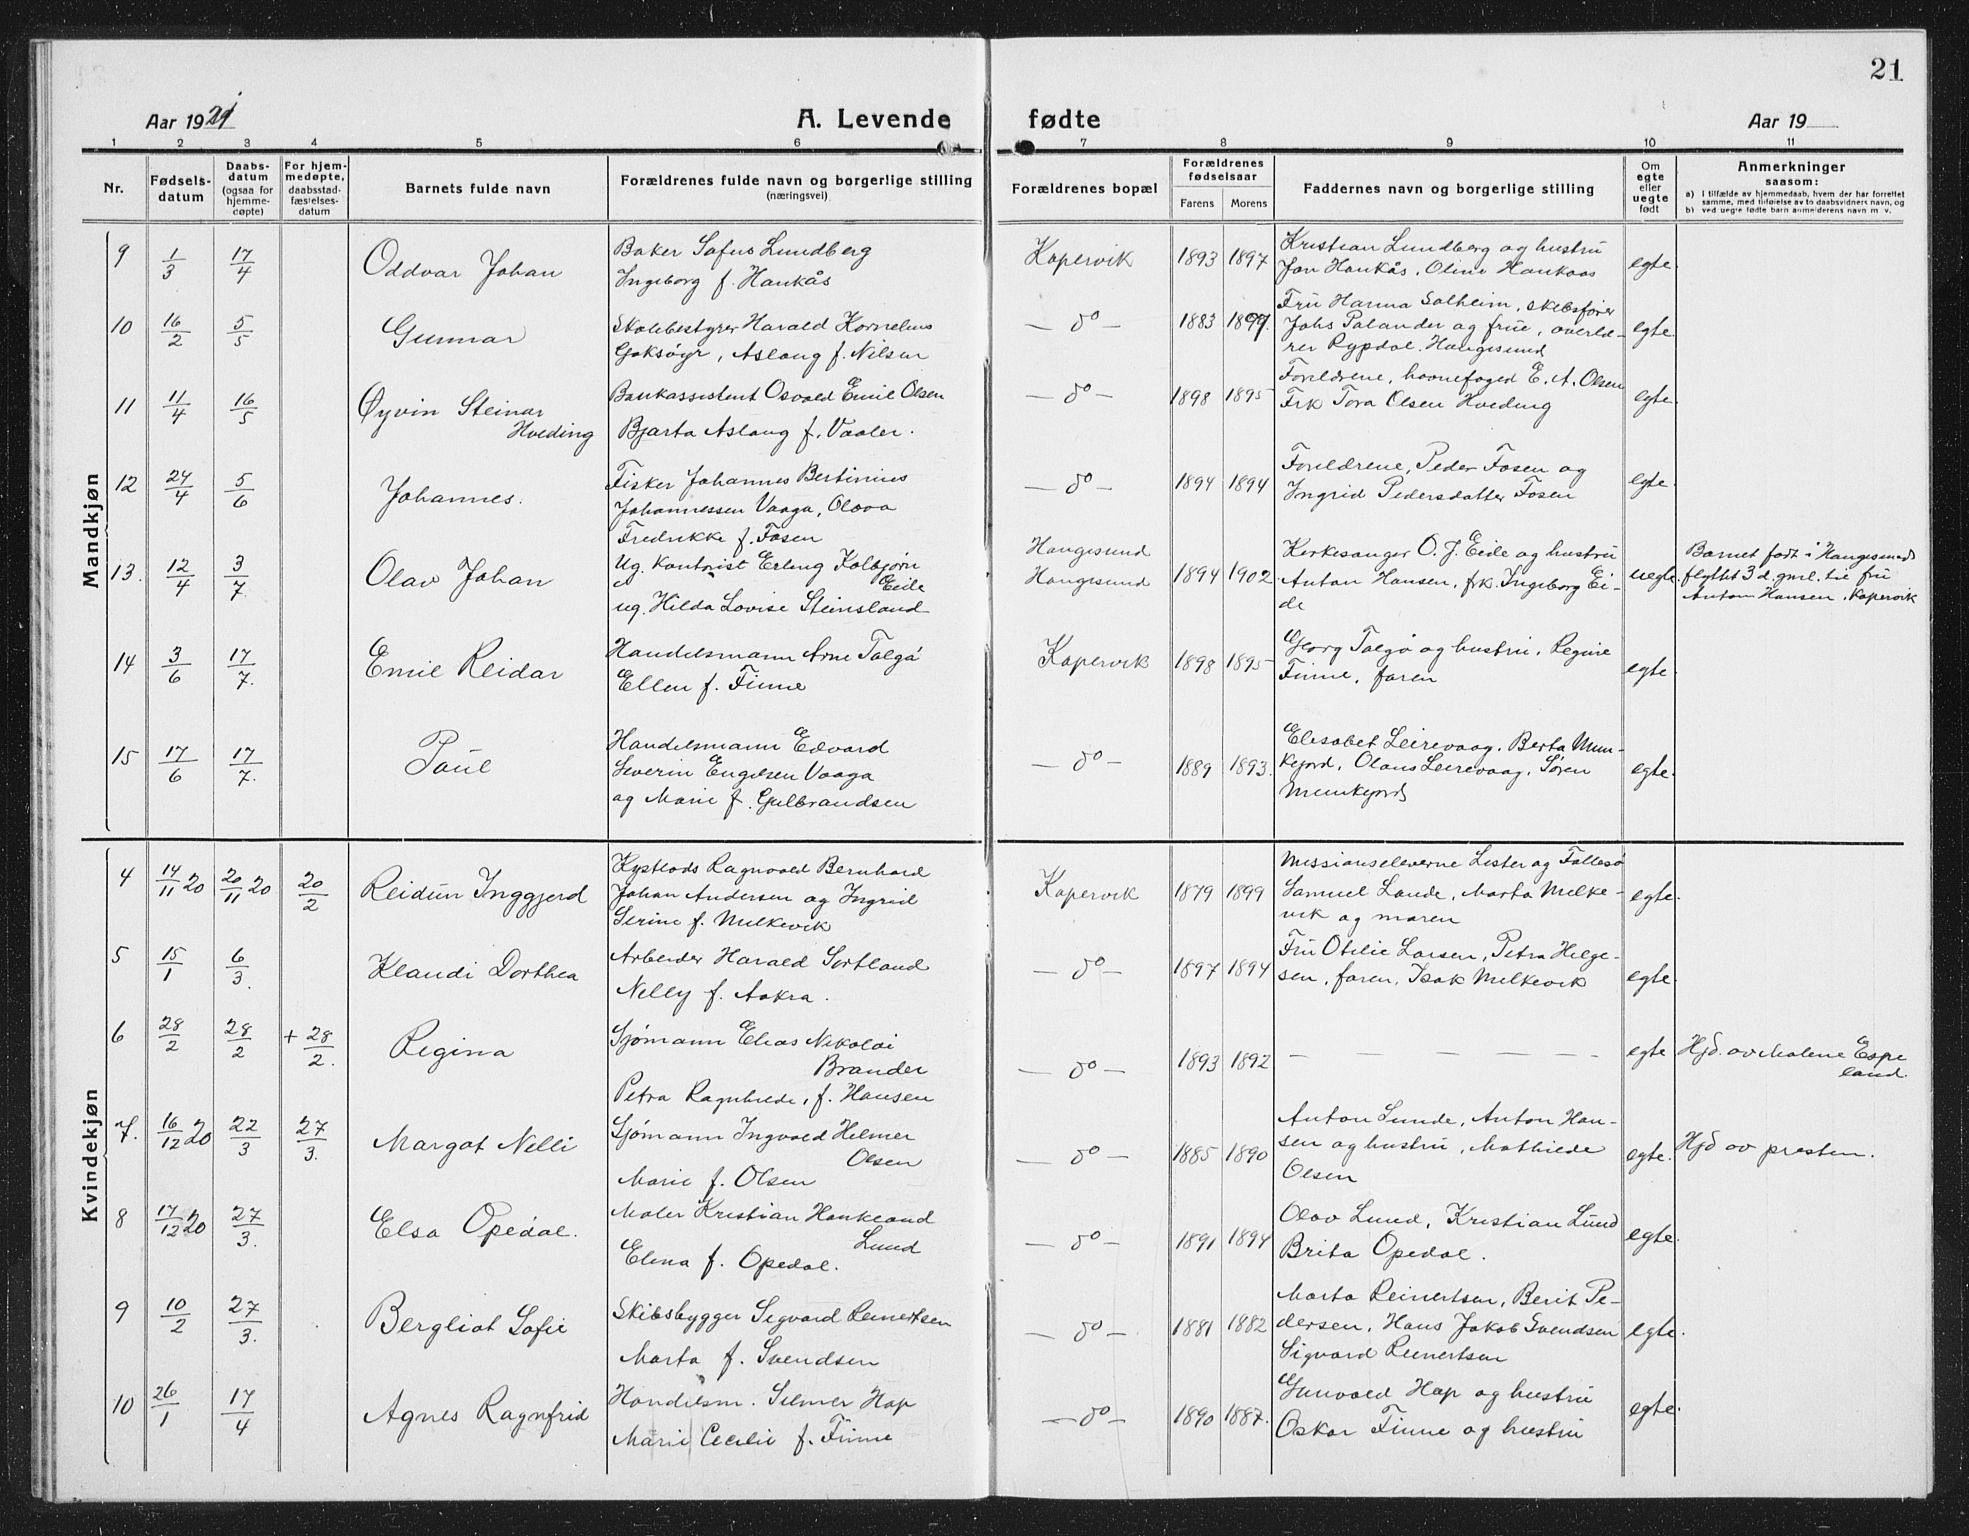 21
Aar 1921
A. Levende fødte
Aar 19
1 2 3 4 5 6 7 8 9 10 11
Nr.
Fødsels-
datum
Daabs-
datum
(ogsaa for
hjemme-
døpte)
For hjem-
medøpte,
daabsstad-
fæstelses-
datum
Barnets fulde navn
Forældrenes fulde navn og borgerlige stilling
(næringsvei)
Forældrenes bopæl
Forældrenes
fødselsaar
Farens Morens
Faddernes navn og borgerlige stilling
Om
egte
eller
uegte
født
Anmerkninger
saasom:
a) I tilfælde av hjemmedaab, hvem der har forrettet
samme, med tilføielse av to daabsvidners navn, og
b) ved uegte fødte barn anmelderens navn m. v.
Mandkjøn
9 1/3 17/4 Oddvar Johan
Baker Sofus Lundberg
Ingeborg f. Haukås
Kopervik 1893 1897
Kristian Lundberg og hustru
Jon Haukås, Oline Haukaas
egte.
10 16/2 5/5 Gunnar
Skolebestyrer Harald Kornelius
Goksøyr, Aslaug f. Nilsen
— do — 1883 1899.
Fru Hanna Solheim, skibsfører
Johs Polander og frue, overlæ-
rer Rypdal, Haugesund
egte.
11 11/4 16/5 Øyvin Steinar
Hveding
Bankassistent Osvald Emil Olsen
Bjarta Aslaug f. Vaaler.
— do — 1898 1895
Foreldrene, havnefoged E. A. Olsen
Frk Tora Olsen Hveding
egte.
12 24/4 5/6 Johannes.
Fisker Johannes Bertinius
Johannessen Vaaga, Olava
Fredrikke f. Fosen
— do — 1894 1894
Foreldrene, Peder Fosen og
Ingrid Pedersdatter Fosen
egte.
13. 12/4 3/7. Olav Johan
Ug. kontorist Erling Kolbjørn
Eide
ug. Hilda Lovise Steinsland
Haugesund
Haugesund
1894 1902.
Kirkesanger O. J. Eide og hustru
Anton Hansen, frk Ingeborg Ei-
de
uegte.
Barnet født i Haugesund
flyttet 3 d. gml. til fru
Anton Hansen, Kopervik
14 3/6 17/7. Emil Reidar
Handelsmann Arne Talgø
Ellen f. Finne
Kopervik 1898 1895
Georg Talgø og hustru, Regine
Finne, faren
egte.
15 17/6 17/7. Paul
Handelsmann Edvard
Severin Engelsen Vaaga
og Marie f. Gulbrandsen
— do — 1889 1893.
Elisabet Leirevaag, Berta Mun-
kejord, Olaus Leirevaag, Søren
Munkejord
egte.
Kvindekjøn
4 14/11 20 20/11 20 20/2 Reidun Inggjerd
Kystlods Ragnvald Bernhard
Johan Andersen og Ingrid
Serine f. Melkevik
Kopervik 1879 1899
Missionseleverne Lister og Fallesø
Samuel Lande, Marta Melke-
vik og moren
egte.
5 15/1 6/3. Klaudi Dorthea
Arbeider Harald Sortland
Nelly f. Aakra.
— do — 1897 1894
Fru Otelie Larsen, Petra Helge-
sen, faren, Isak Melkevik
egte.
6 28/2 28/2 + 28/2. Regina
Sjømann Elias Nikolai
Brander
Petra Ragnhilde, f. Hansen
— do — 1893 1892
— — — — — —
egte
Hjd. av Malene Espe
land.
7. 16/12 20 22/3 27/3. Margot Nelli
Sjømann Ingvald Helmer
Olsen
Marie f. Olsen
— do — 1885 1890
Anton Lunde, Anton Han-
sen og hustru, Mathilde
Olsen
egte.
Hjd av presten.
8 17/12 20 27/3. Elsa Opedal.
Maler Kristian Haukeland
Lund
Elina f. Opedal.
— do — 1891 1894
Olav Lund, Kristian Lund
Brita Opedal.
egte.
9 10/2 27/3. Bergliot Sofie
Skibsbygger Sigvard Reinertsen
Marta f. Svendsen
— do — 1881 1882
Marta Reinertsen, Berit Pe-
dersen, Hans Jakob Svendsen
Sigvard Reinertsen
egte.
10 26/1 17/4 Agnes Ragnfrid
Handelsm. Selmer Hap
Marie Cecilie f. Finne
— do — 1890 1887.
Gunvald Hap og hustru
Oskar Finne og hustru
egte.